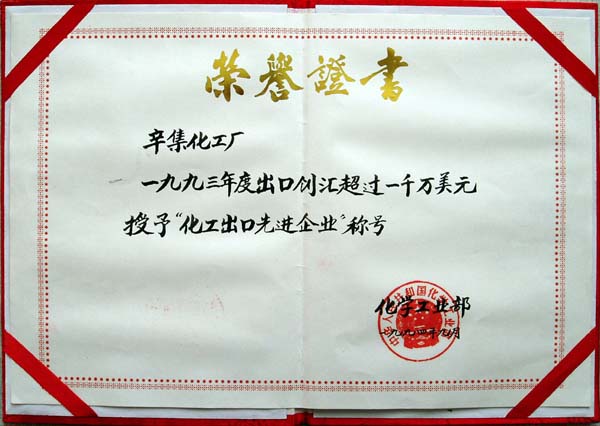 荣誉證書
辛集化工厂
一九九三年度出口创汇超过一千万美元
授予“化工出口先进企业”称号
化学工业部
一九九四年九月